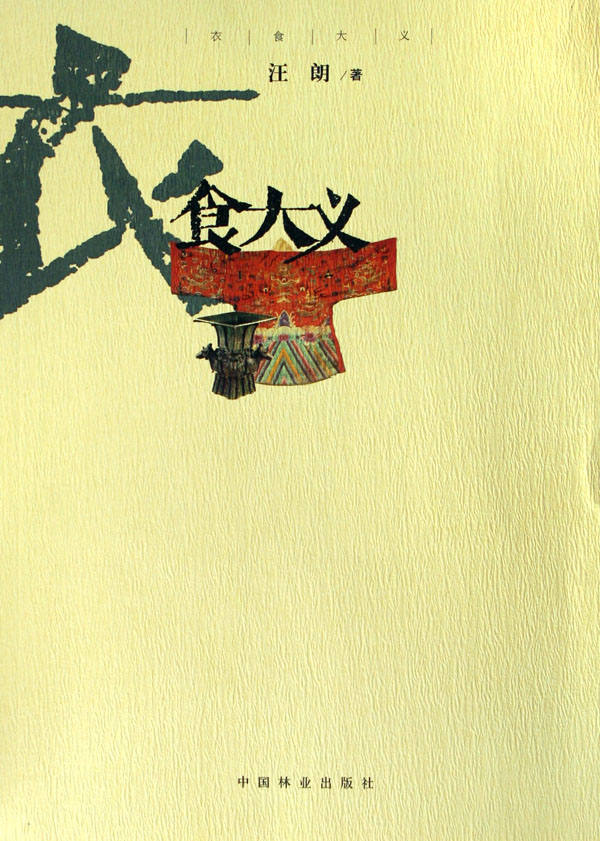 衣食大义
汪朗/著
衣食大义
中国林业出版社